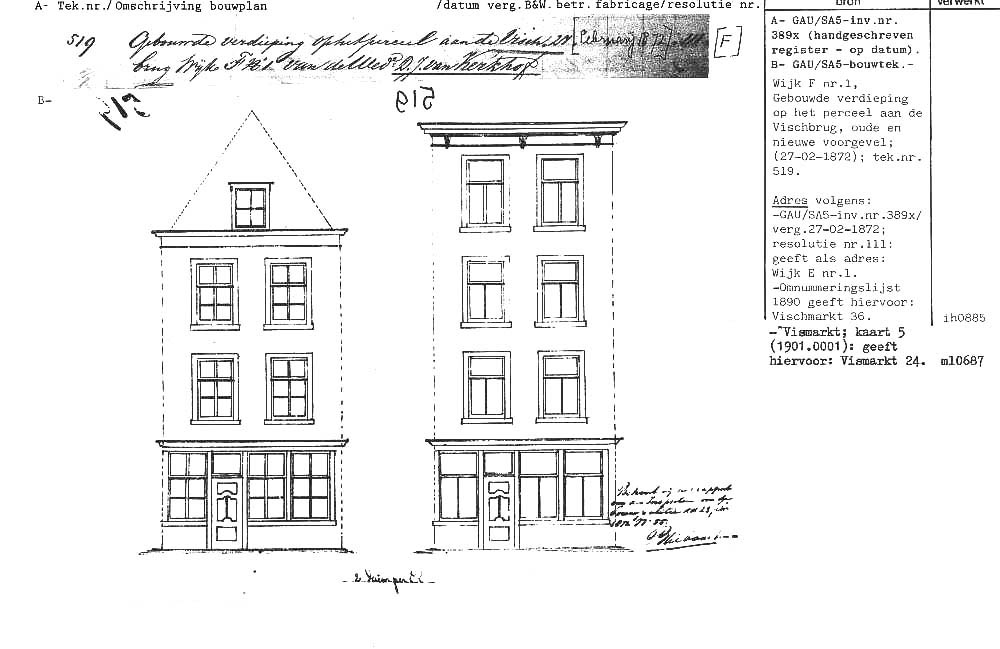 A- Tek.nr./ Omschrijving bouwplan /datum verg.B&W.betr.fabricage/resolutie nr.
bron verwerkt
519 Gebouwde verdieping op het perceel aan de Visch- 27 [Februarij 1872]. 111 [F]
brug Wijk F No 1. van de Wed. D. J. van Kerkhof
B-
519
519
A- GAU/SA5-inv.nr.
389x (handgeschreven
register - op datum).
B- GAU/SA5-bouwtek.-
Wijk F nr.1,
Gebouwde verdieping
op het perceel aan de
Vischbrug, oude en
nieuwe voorgevel;
(27-02-1872); tek.nr.
519.
Adres volgens:
-GAU/SA5-inv.nr.389x/
verg.27-02-1872;
resolutie nr.111:
geeft als adres:
Wijk E nr.1.
-Omnummeringslijst
1890 geeft hiervoor:
Vischmarkt 36. ih0885
-~Vismarkt; kaart 5
(1901.0001): geeft
hiervoor: Vismarkt 24. ml0687
Behoort bij